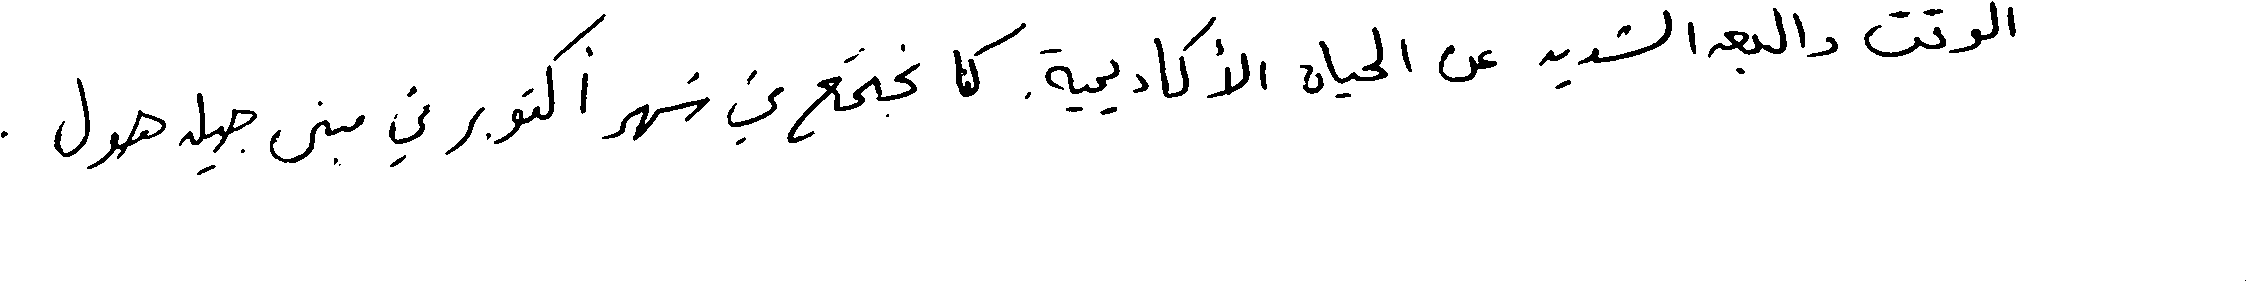 الوقت والبعد الشديد عن الحياة الأكاديمية. كنا نجتمع في شهر أكتوبر في مبنى جيلد هول .